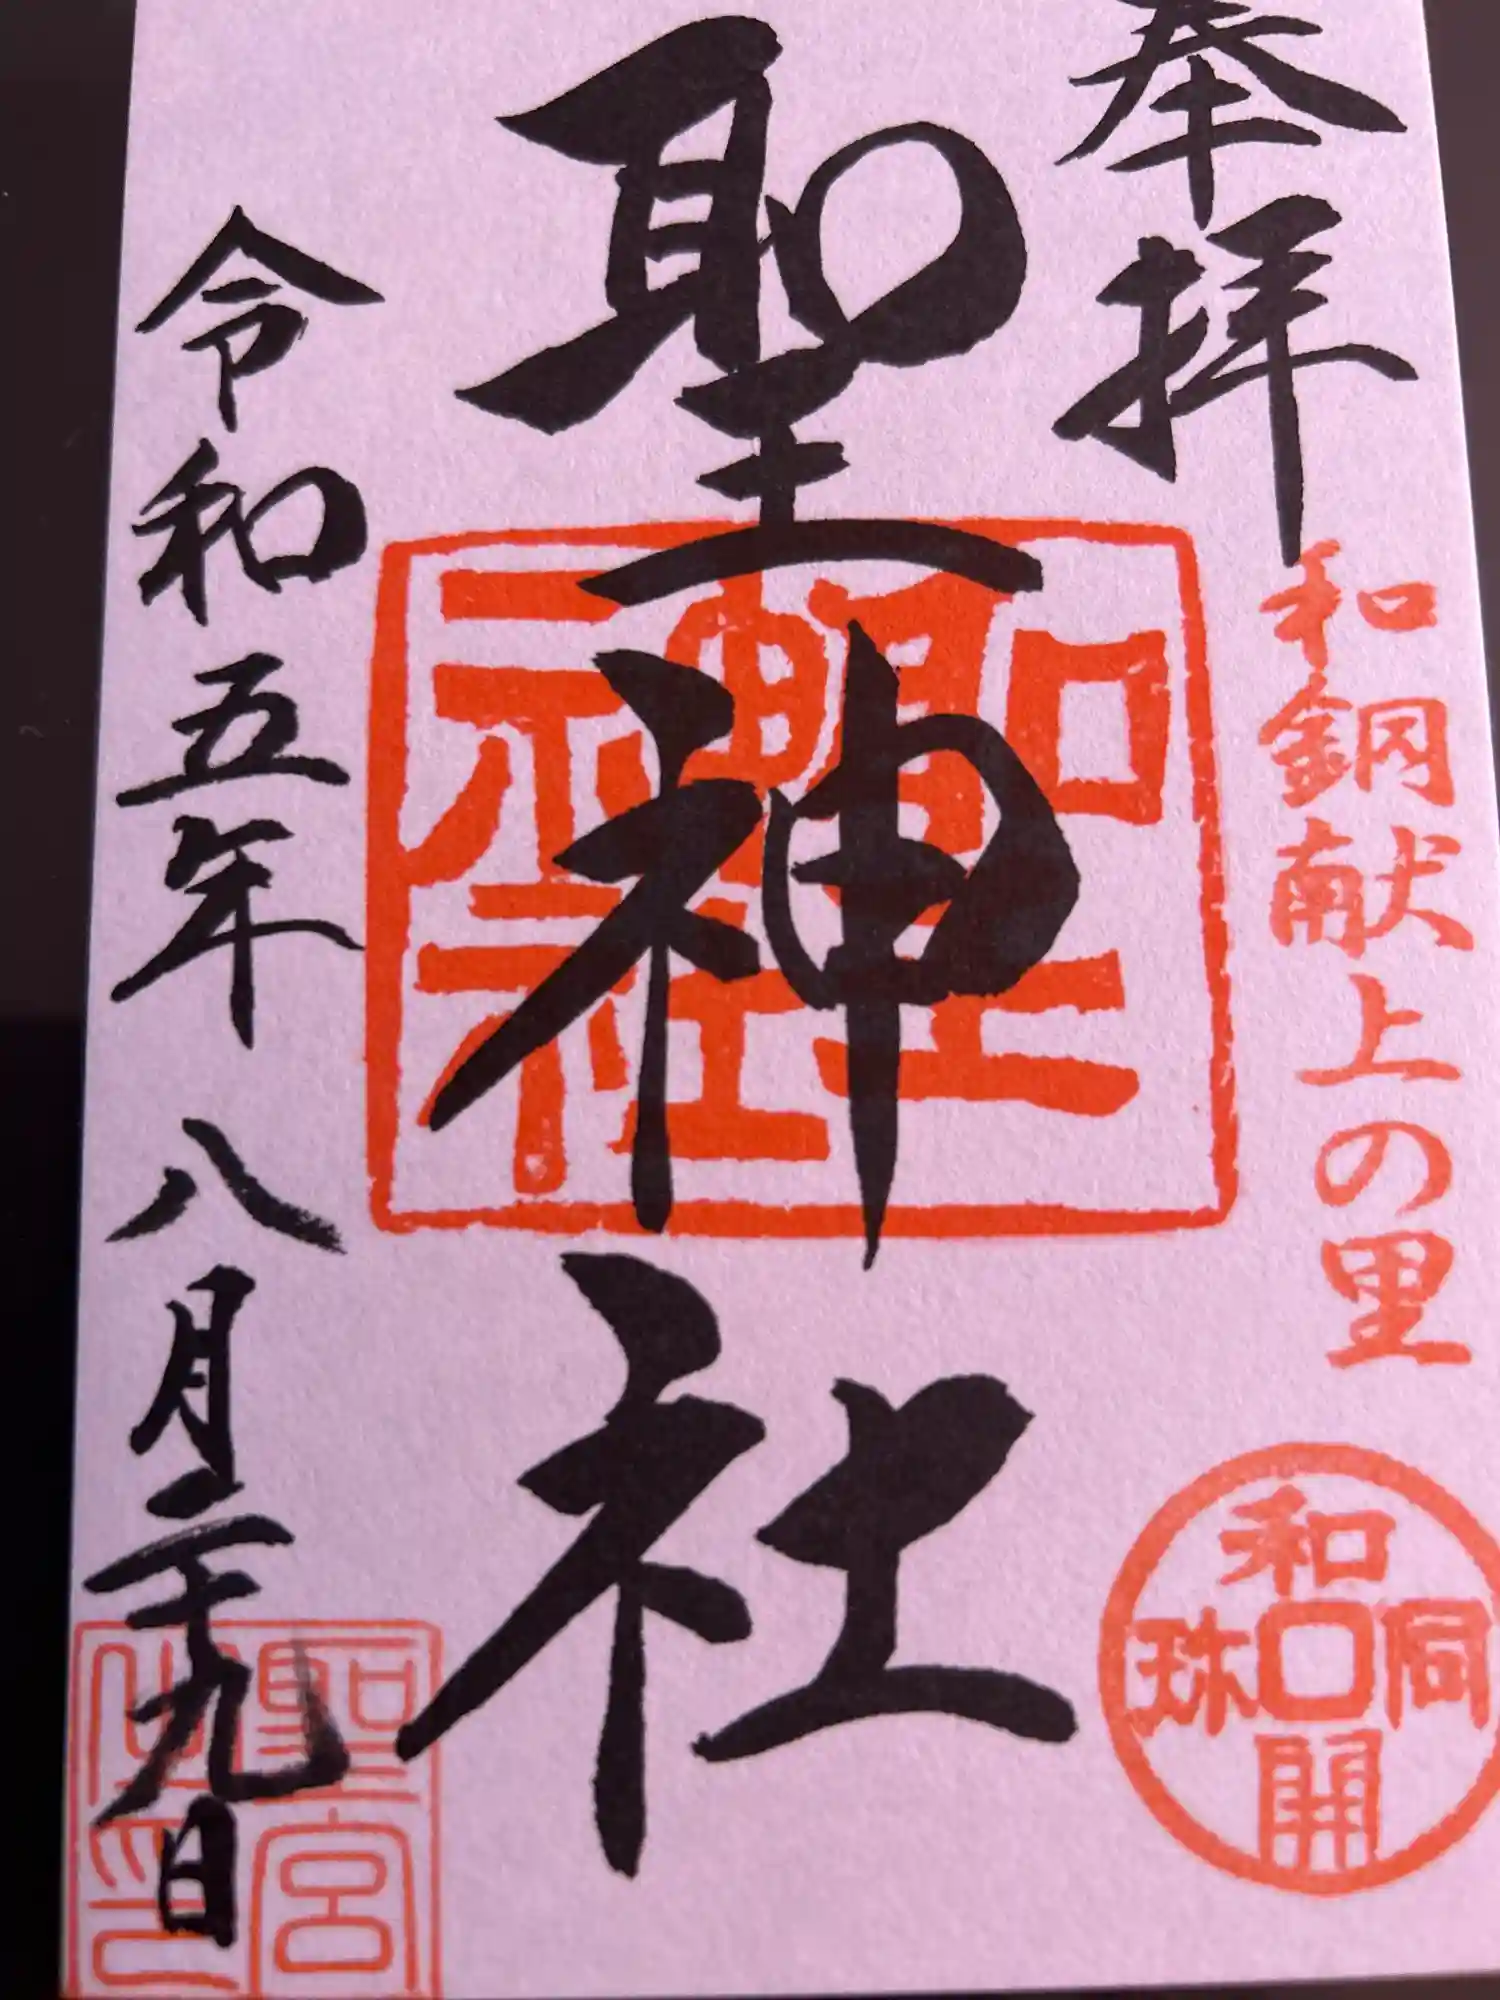 奉拝
和銅献上の里
和同開珎
聖神社
聖神社
令和五年 八月二十九日
聖宮